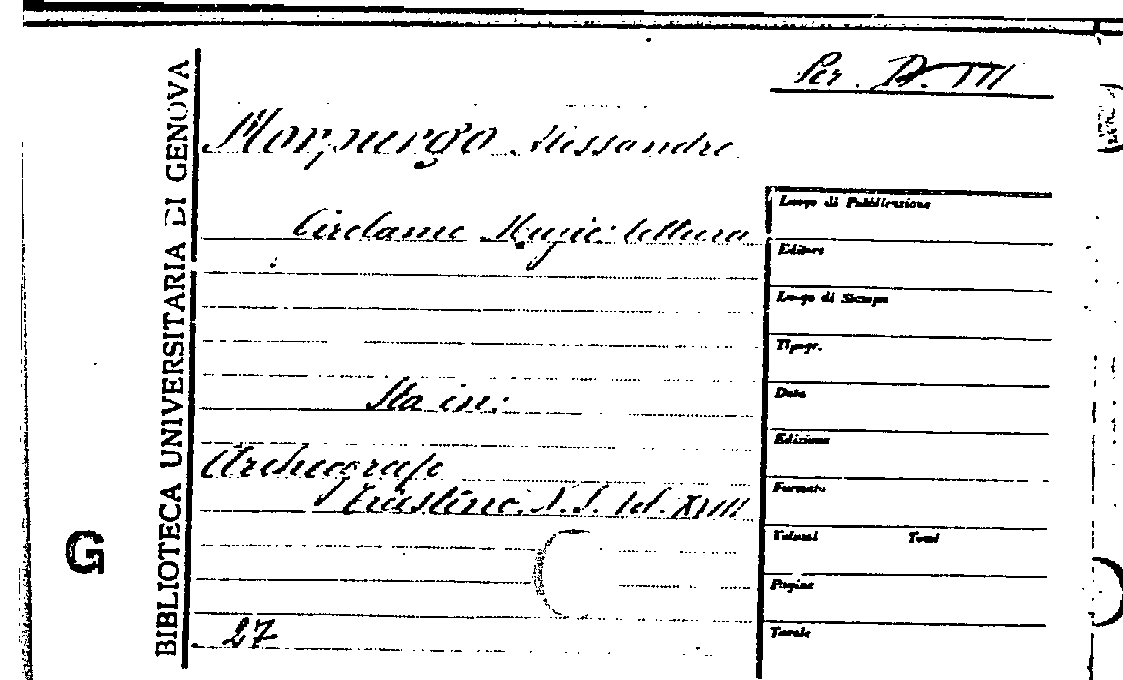 Per. D. III
Morpurgo Alessandro
Girolamo Muzio: lettura
Sta in:
Archeografo
Triestino. N. S. Vol. XVIII
27
BIBLIOTECA UNIVERSITARIA DI GENOVA
G
Luogo di Pubblicazione
Editore
Luogo di Stampa
Tipogr.
Data
Edizione
Formato
Volumi Tomi
Pagine
Tavole